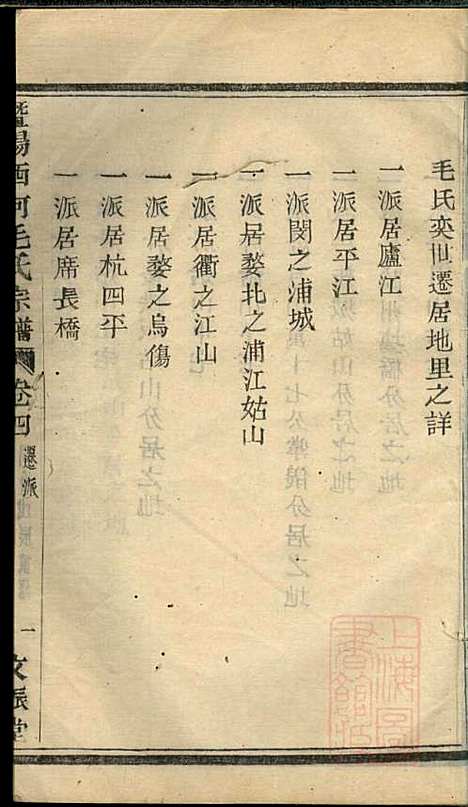 毛氏奕世遷居地里之詳
一派居廬江
一派居平江
一派閔之浦城
一派居婺北之浦江姑山
一派居衢之江山
一派居婺之烏傷
一派居杭四平
一派居席長橋
暨陽西河毛氏宗譜 卷四 遷派 一 文振堂
上海圖書館藏